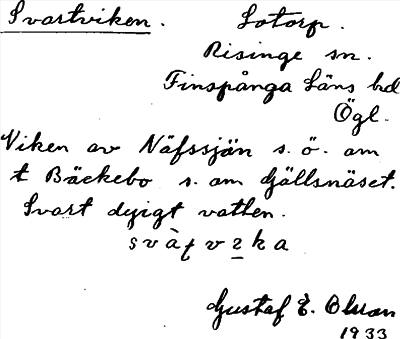 Svartviken. Lotorp.
Risinge sn.
Finspånga Läns hd
Ögl.
Viken av Näfssjön s. ö. om
t Bäckebo s. om Gjällsnäset.
Svart dyigt vatten.
Gustaf E. Olsson
1933